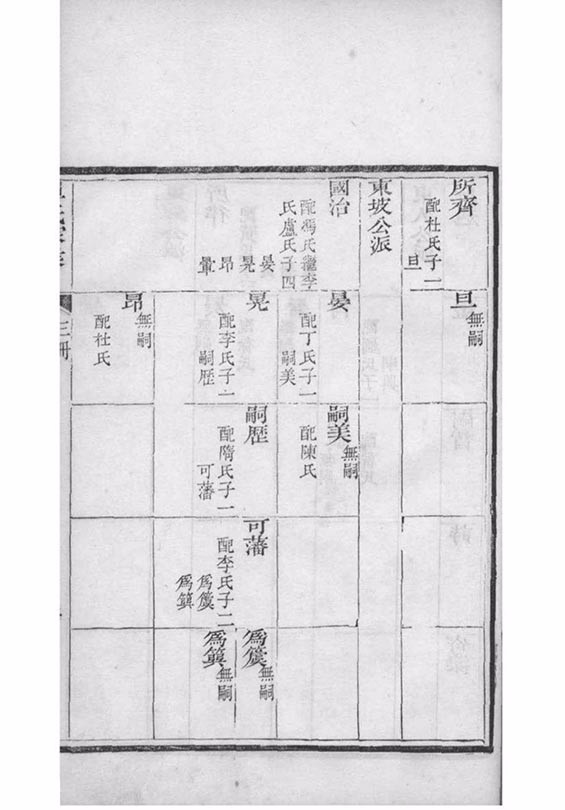 所齊
配杜氏子一
旦
東坡公派
國治
配馮氏繼李
氏盧氏子四
晏
晃
昂
暈
旦
無嗣
晏
配丁氏子一
嗣美
晃
配李氏子一
嗣歷
昂
無嗣
配杜氏
嗣美
無嗣
配陳氏
嗣歷
配隋氏子一
可藩
可藩
配李氏子二
為籇
為籅
無嗣
無嗣
三册